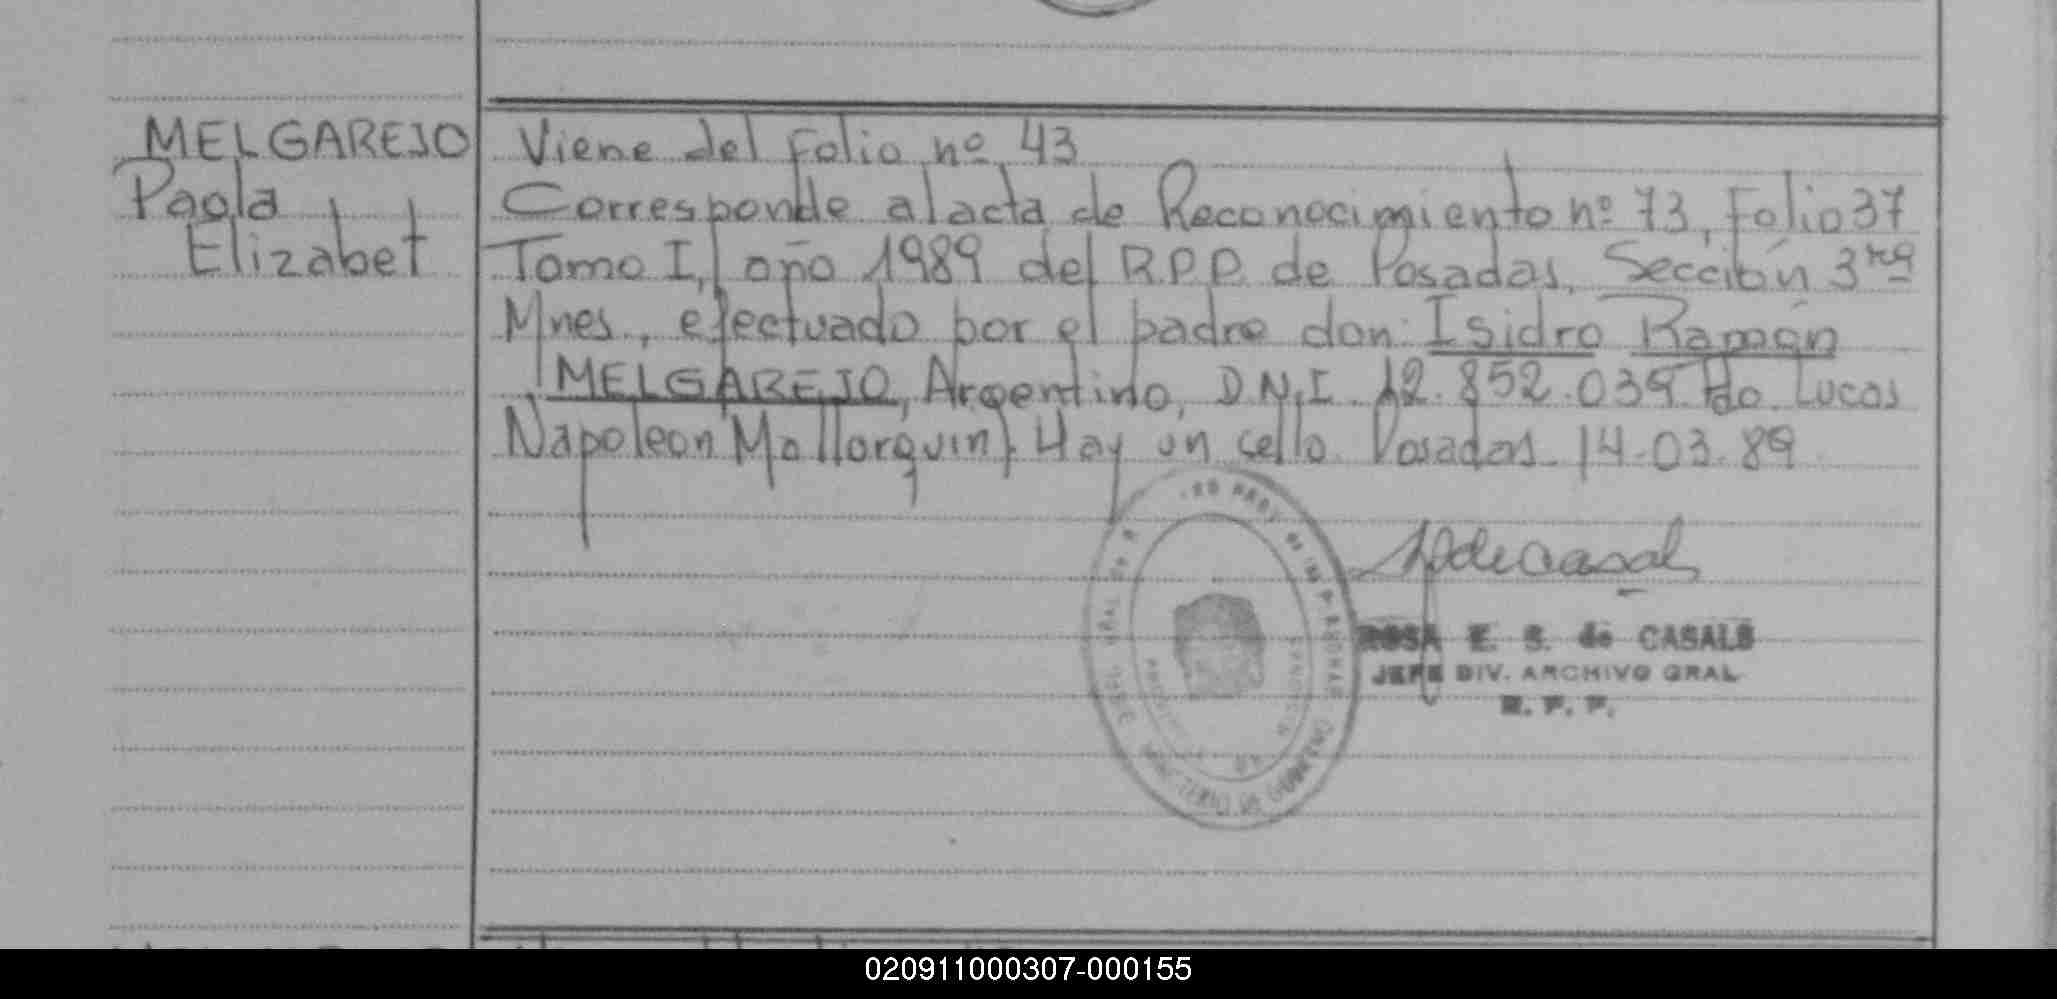 MELGAREJO
Paola
Elizabet
Viene del Folio nº 43
Corresponde al acta de Reconocimiento nº 73, Folio 37
Tomo I, año 1989 del R.P.P. de Posadas, Sección 3ra
Mnes., efectuado por el padre don: Isidro Ramón
MELGAREJO, Argentino, D.N.I. 12.852.039 Fdo. Lucas
Napoleon Mallorquin). Hay un cello. Posadas 14-03-89
ROSA E. S. de CASALS
JEFE DIV. ARCHIVO GRAL
R. P. P.
MINISTERIO DE GOBIERNO
020911000307-000155